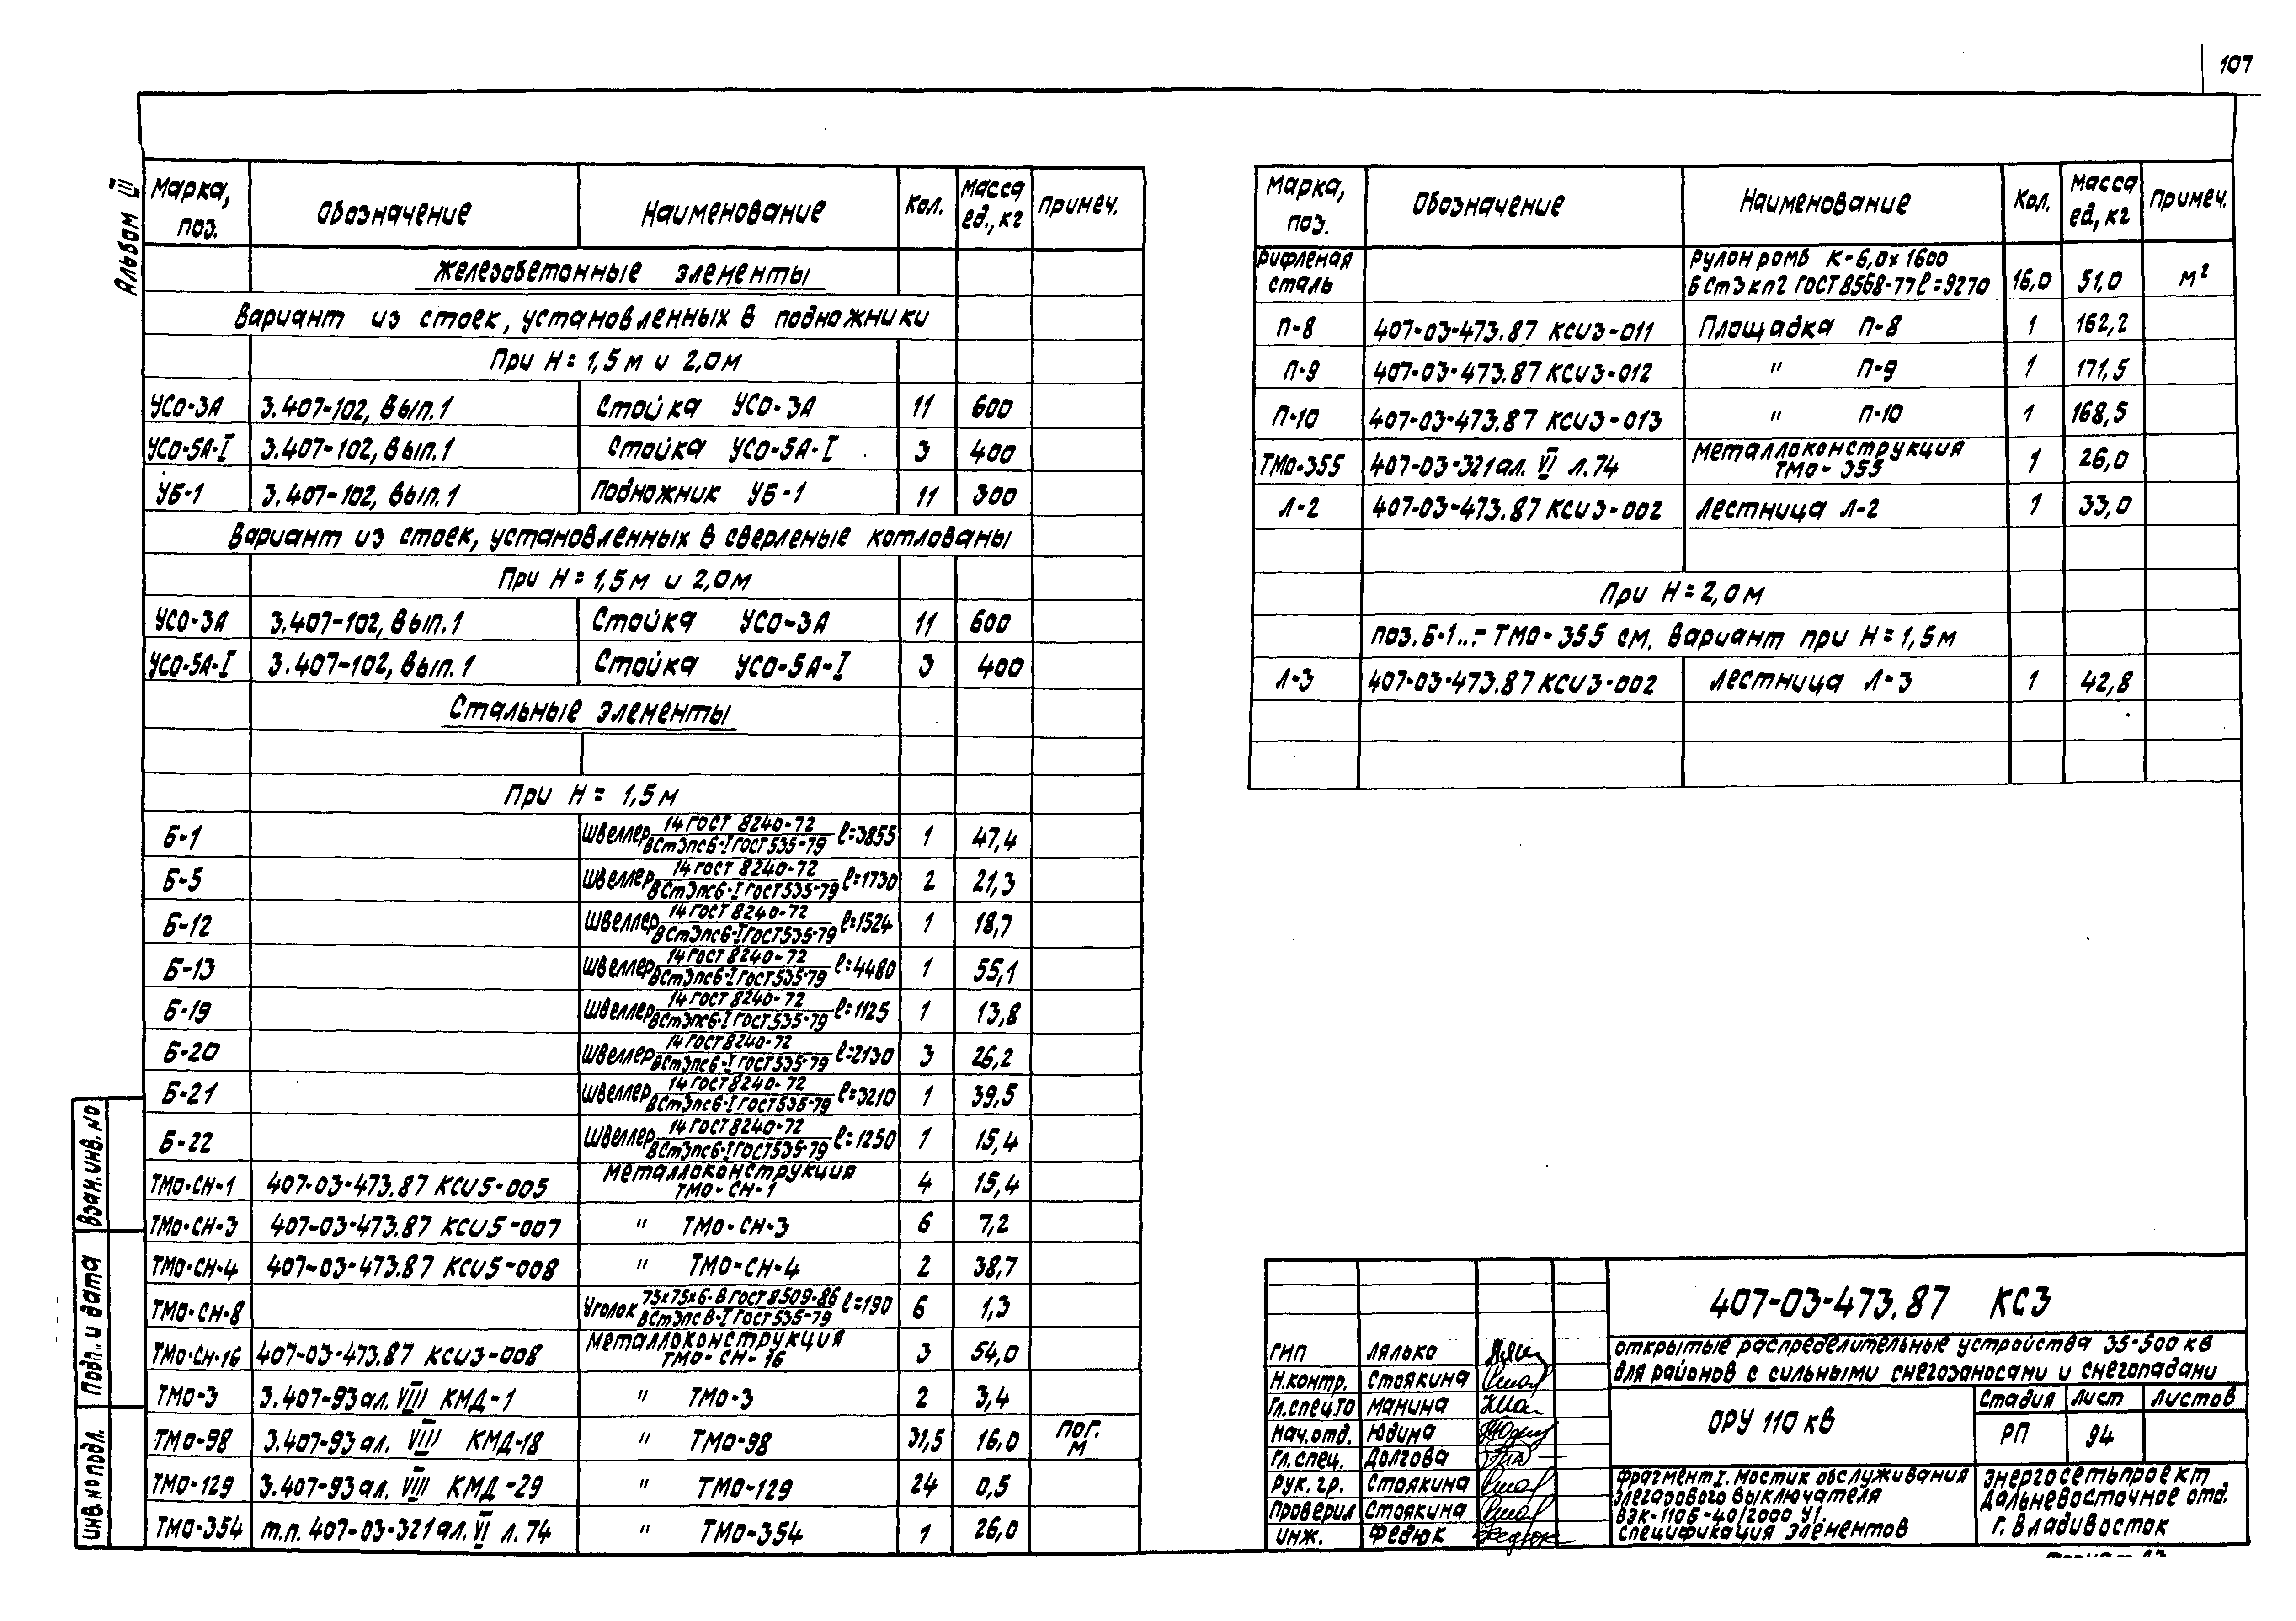 107
Альбом III
Марка, поз. Обозначение Наименование Кол. Масса ед., кг Примеч.
Железобетонные элементы
Вариант из стоек, установленных в подножники
При Н = 1,5 м и 2,0 м
УСО-3А 3.407-102, вып.1 Стойка УСО-3А 11 600
УСО-5А-I 3.407-102, вып.1 Стойка УСО-5А-I 3 400
УБ-1 3.407-102, вып.1 Подножник УБ-1 11 300
Вариант из стоек, установленных в сверленые котлованы
При Н = 1,5 м и 2,0 м
УСО-3А 3.407-102, вып.1 Стойка УСО-3А 11 600
УСО-5А-I 3.407-102, вып.1 Стойка УСО-5А-I 3 400
Стальные элементы
При Н = 1,5 м
Б-1 Швеллер 14 ГОСТ 8240-72 / ВСт3пс6-I ГОСТ 535-79 ℓ=3855 1 47,4
Б-5 Швеллер 14 ГОСТ 8240-72 / ВСт3пс6-I ГОСТ 535-79 ℓ=1730 2 21,3
Б-12 Швеллер 14 ГОСТ 8240-72 / ВСт3пс6-I ГОСТ 535-79 ℓ=1524 1 18,7
Б-13 Швеллер 14 ГОСТ 8240-72 / ВСт3пс6-I ГОСТ 535-79 ℓ=4480 1 55,1
Б-19 Швеллер 14 ГОСТ 8240-72 / ВСт3пс6-I ГОСТ 535-79 ℓ=1125 1 13,8
Б-20 Швеллер 14 ГОСТ 8240-72 / ВСт3пс6-I ГОСТ 535-79 ℓ=2130 3 26,2
Б-21 Швеллер 14 ГОСТ 8240-72 / ВСт3пс6-I ГОСТ 535-79 ℓ=3210 1 39,5
Б-22 Швеллер 14 ГОСТ 8240-72 / ВСт3пс6-I ГОСТ 535-79 ℓ=1250 1 15,4
ТМО-СН-1 407-03-473.87 КСИ5-005 Металлоконструкция ТМО-СН-1 4 15,4
ТМО-СН-3 407-03-473.87 КСИ5-007 " ТМО-СН-3 6 7,2
ТМО-СН-4 407-03-473.87 КСИ5-008 " ТМО-СН-4 2 38,7
ТМО-СН-8 Уголок 75х75х6-В ГОСТ 8509-86 / ВСт3пс6-I ГОСТ 535-79 ℓ=190 6 1,3
ТМО-СН-16 407-03-473.87 КСИ3-008 Металлоконструкция ТМО-СН-16 3 54,0
ТМО-3 3.407-93 ал. VIII КМД-1 " ТМО-3 2 3,4
ТМО-98 3.407-93 ал. VIII КМД-18 " ТМО-98 31,5 16,0 пог. м
ТМО-129 3.407-93 ал. VIII КМД-29 " ТМО-129 24 0,5
ТМО-354 т.п. 407-03-321 ал. VI л. 74 " ТМО-354 1 26,0
Марка, поз. Обозначение Наименование Кол. Масса ед, кг Примеч.
Рифленая сталь Рулон ромб К-6,0х1600 БСт3кп2 ГОСТ 8568-77 ℓ=9270 16,0 51,0 м²
П-8 407-03-473.87 КСИ3-011 Площадка П-8 1 162,2
П-9 407-03-473.87 КСИ3-012 " П-9 1 171,5
П-10 407-03-473.87 КСИ3-013 " П-10 1 168,5
ТМО-355 407-03-321 ал. VI л. 74 Металлоконструкция ТМО-355 1 26,0
Л-2 407-03-473.87 КСИ3-002 Лестница Л-2 1 33,0
При Н = 2,0 м
поз. Б-1...-ТМО-355 см. вариант при Н = 1,5 м
Л-3 407-03-473.87 КСИ3-002 Лестница Л-3 1 42,8
Взам. инв. №
Подп. и дата
Инв. № подл.
407-03-473.87 КС3
Открытые распределительные устройства 35-500 кв
для районов с сильными снегозаносами и снегопадами
ГИП Лялько
Н.контр. Стоякина
Гл.спец.ТО Манина
Нач.отд. Юдина
Гл. спец. Долгова
Рук. гр. Стоякина
Проверил Стоякина
Инж. Федюк
ОРУ 110 кв
Стадия Лист Листов
РП 94
Фрагмент I. Мостик обслуживания
элегазового выключателя
ВЭК-110Б-40/2000 У1.
Спецификация элементов
Энергосетьпроект
Дальневосточное отд.
г. Владивосток